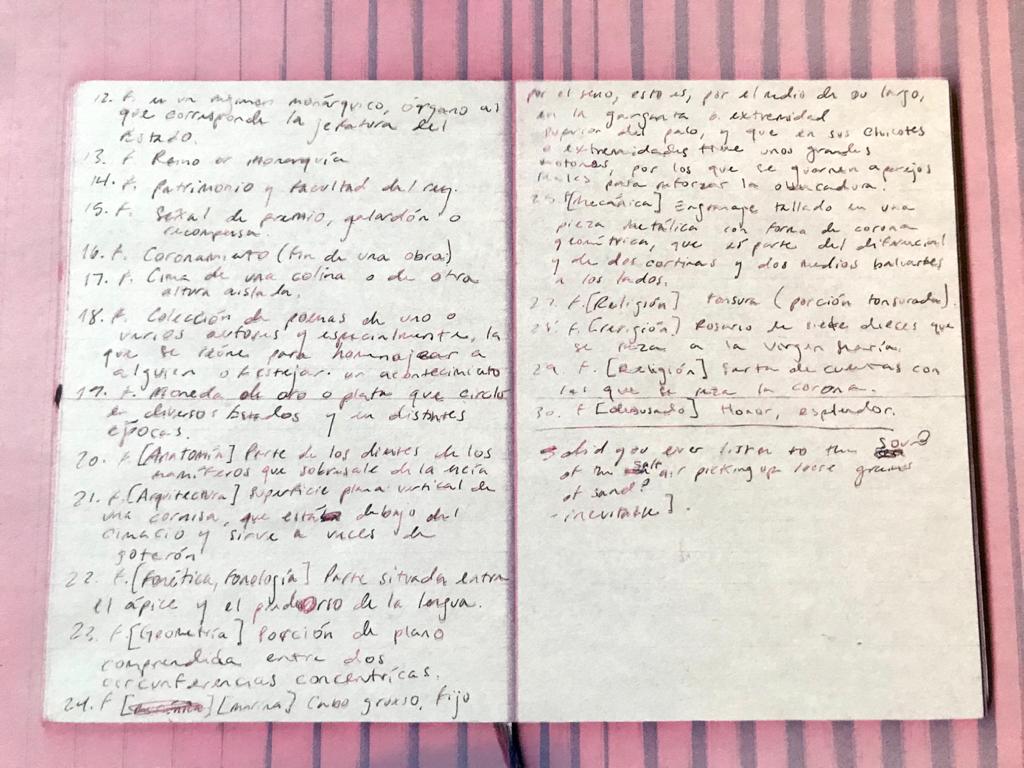 12. f. en un régimen monárquico, órgano al
que corresponde la jefatura del
Estado.
13. f. Reino o monarquía
14. f. Patrimonio y facultad del rey.
15. f. Señal de premio, galardón o
recompensa.
16. f. Coronamiento (fin de una obra)
17. f. Cima de una colina o de otra
altura aislada.
18. f. Colección de poemas de uno o
varios autores y especialmente, la
que se reúne para homenajear a
alguien o festejar un acontecimiento
19. f. Moneda de oro o plata que circuló
en diversos Estados y en distintas
épocas.
20. f. [Anatomía] Parte de los dientes de los
mamíferos que sobresale de la encía
21. f. [Arquitectura] Superficie plana vertical de
una cornisa, que está debajo del
cimacio y sirve a veces de
goterón
22. f. [Fonética, Fonología] Parte situada entre
el ápice y el predorso de la lengua.
23. f [Geometría] Porción de plano
comprendida entre dos
circunferencias concentricas.
24. f [Marina] Cabo grueso, fijo
por el seno, esto es, por el medio de su largo,
en la garganta o extremidad
superior del palo, y que en sus chicotes
o extremidades tiene unos grandes
motones, por los que se guarnen aparejos
reales para reforzar la obencadura.
[Mecánica] Engranaje tallado en una
pieza metálica con forma de corona
geométrica, que es parte del diferencial
y de dos cortinas y dos medios baluartes
a los lados.
27. f. [Religión] tonsura (porción tonsurada).
28. f. [religión] Rosario de siete dieces que
se reza a la Virgen María.
29. f. [Religión] Sarta de cuentas con
las que se reza la corona.
30. f [desusado] Honor, esplendor.
did you ever listen to the
of the salt air picking up loose grains
of sand?
- inevitable].